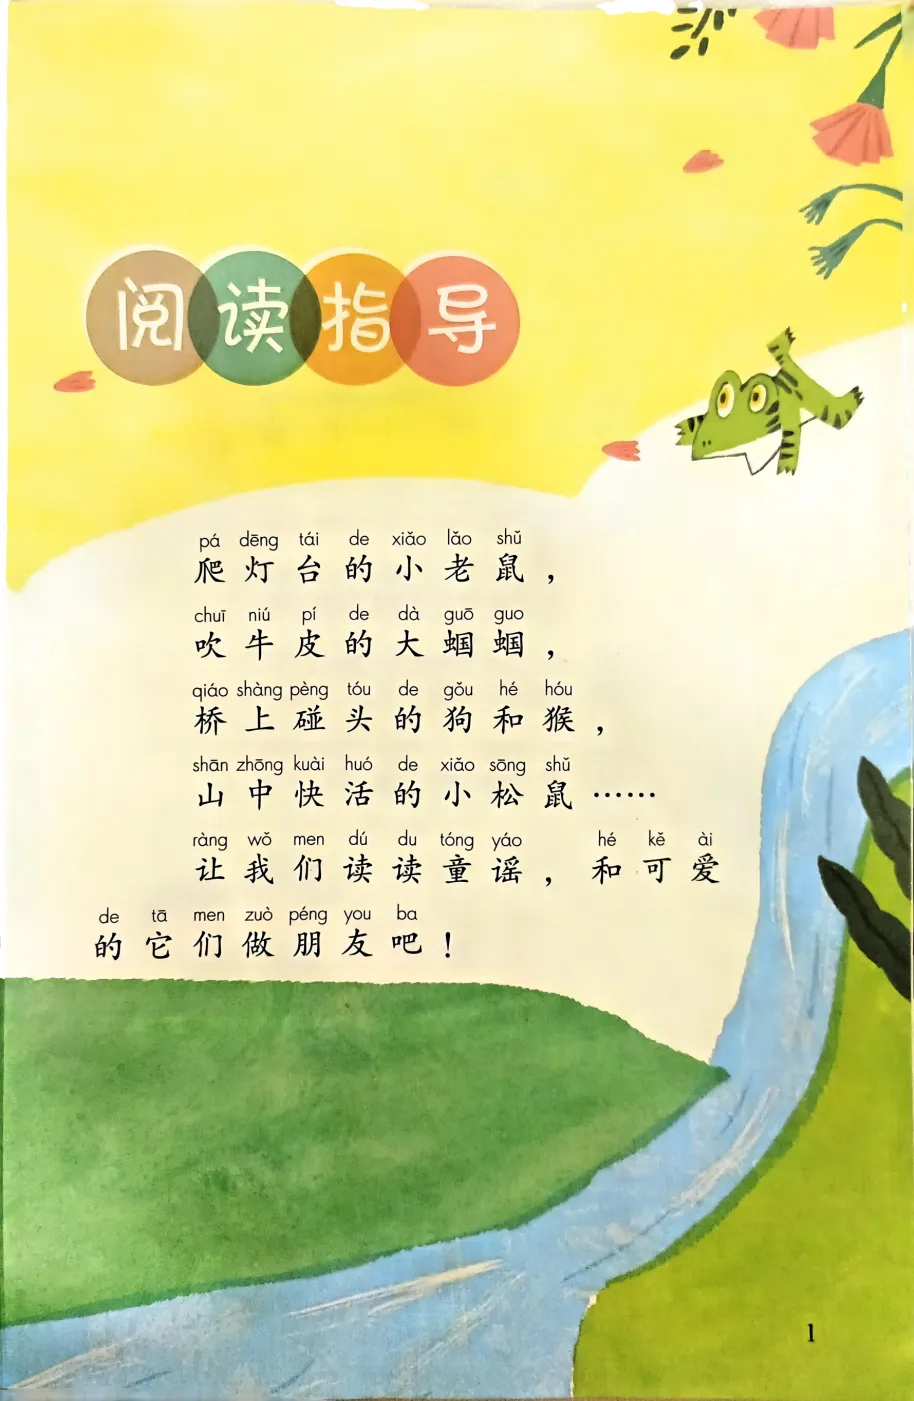 阅读指导
pá dēng tái de xiǎo lǎo shǔ
爬灯台的小老鼠，
chuī niú pí de dà guō guo
吹牛皮的大蝈蝈，
qiáo shàng pèng tóu de gǒu hé hóu
桥上碰头的狗和猴，
shān zhōng kuài huó de xiǎo sōng shǔ
山中快活的小松鼠……
ràng wǒ men dú du tóng yáo hé kě ài
让我们读读童谣，和可爱
de tā men zuò péng you ba
的它们做朋友吧！
1